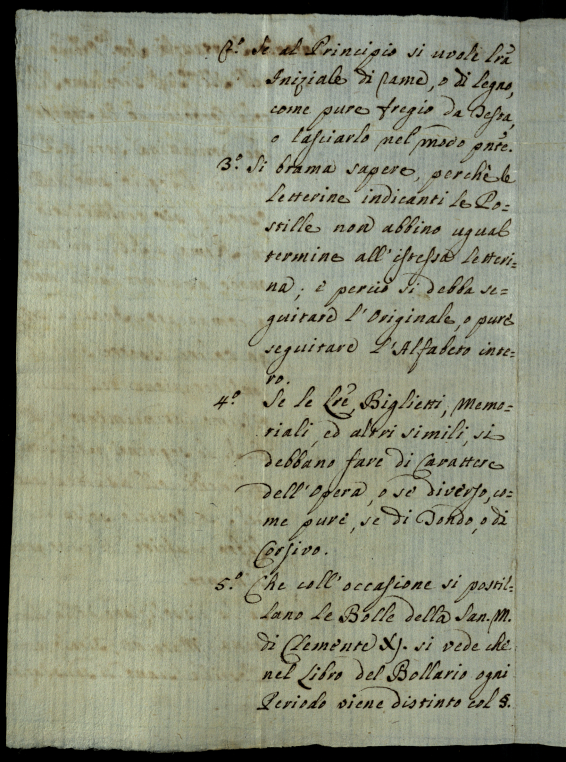 2.º Se al Principio si vuole Lrã
Iniziale di rame, o di legno,
come pure fregio da Testa,
o lasciarlo nel modo pntẽ.
3.º Si brama sapere, perchè le
Letterine indicanti le Po=
stille non abbino ugual
termine all'istessa Letteri=
na; e perciò si debba se=
guitare l'Originale, o pure
seguitare l'Alfabeto inte=
ro.
4.º Se le Lrẽ, Biglietti, Memo=
riali, ed altri simili, si
debbano fare di Carattere
dell'Opera, o se diverso, co=
me pure, se di Tondo, o di
Corsivo.
5.º Che coll'occasione si postil=
lano le Bolle della San. M.
di Clemente XJ. si vede che
nel Libro del Bollario ogni
Periodo viene distinto col §.